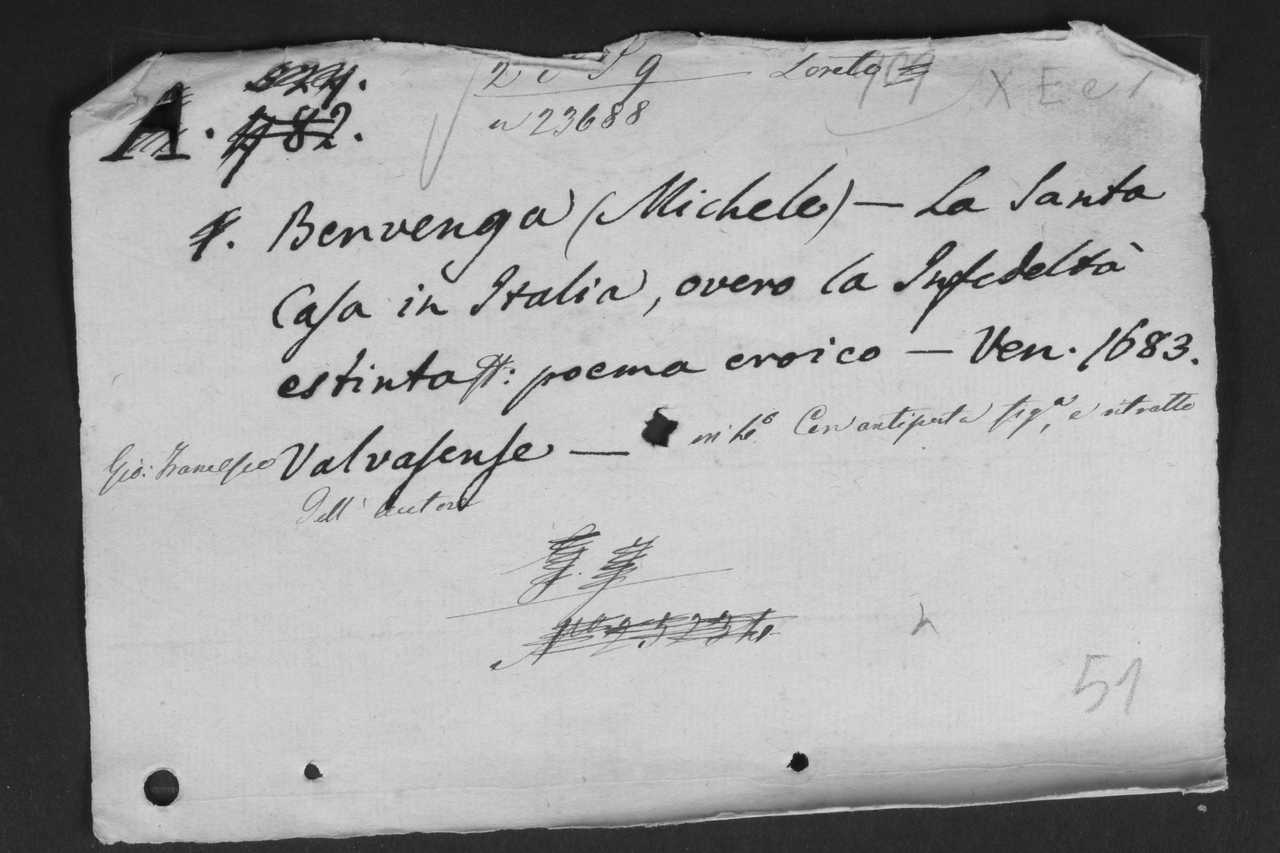 A. 
Loreto
n 23688
X E e 1
Benvenga (Michele) — La Santa
Casa in Italia, overo la Infedeltà
estinta: poema eroico — Ven. 1683.
Gio: Francesco Valvasense — in 12.º Con antiporta fig.ª, e ritratto
dell' autore
51